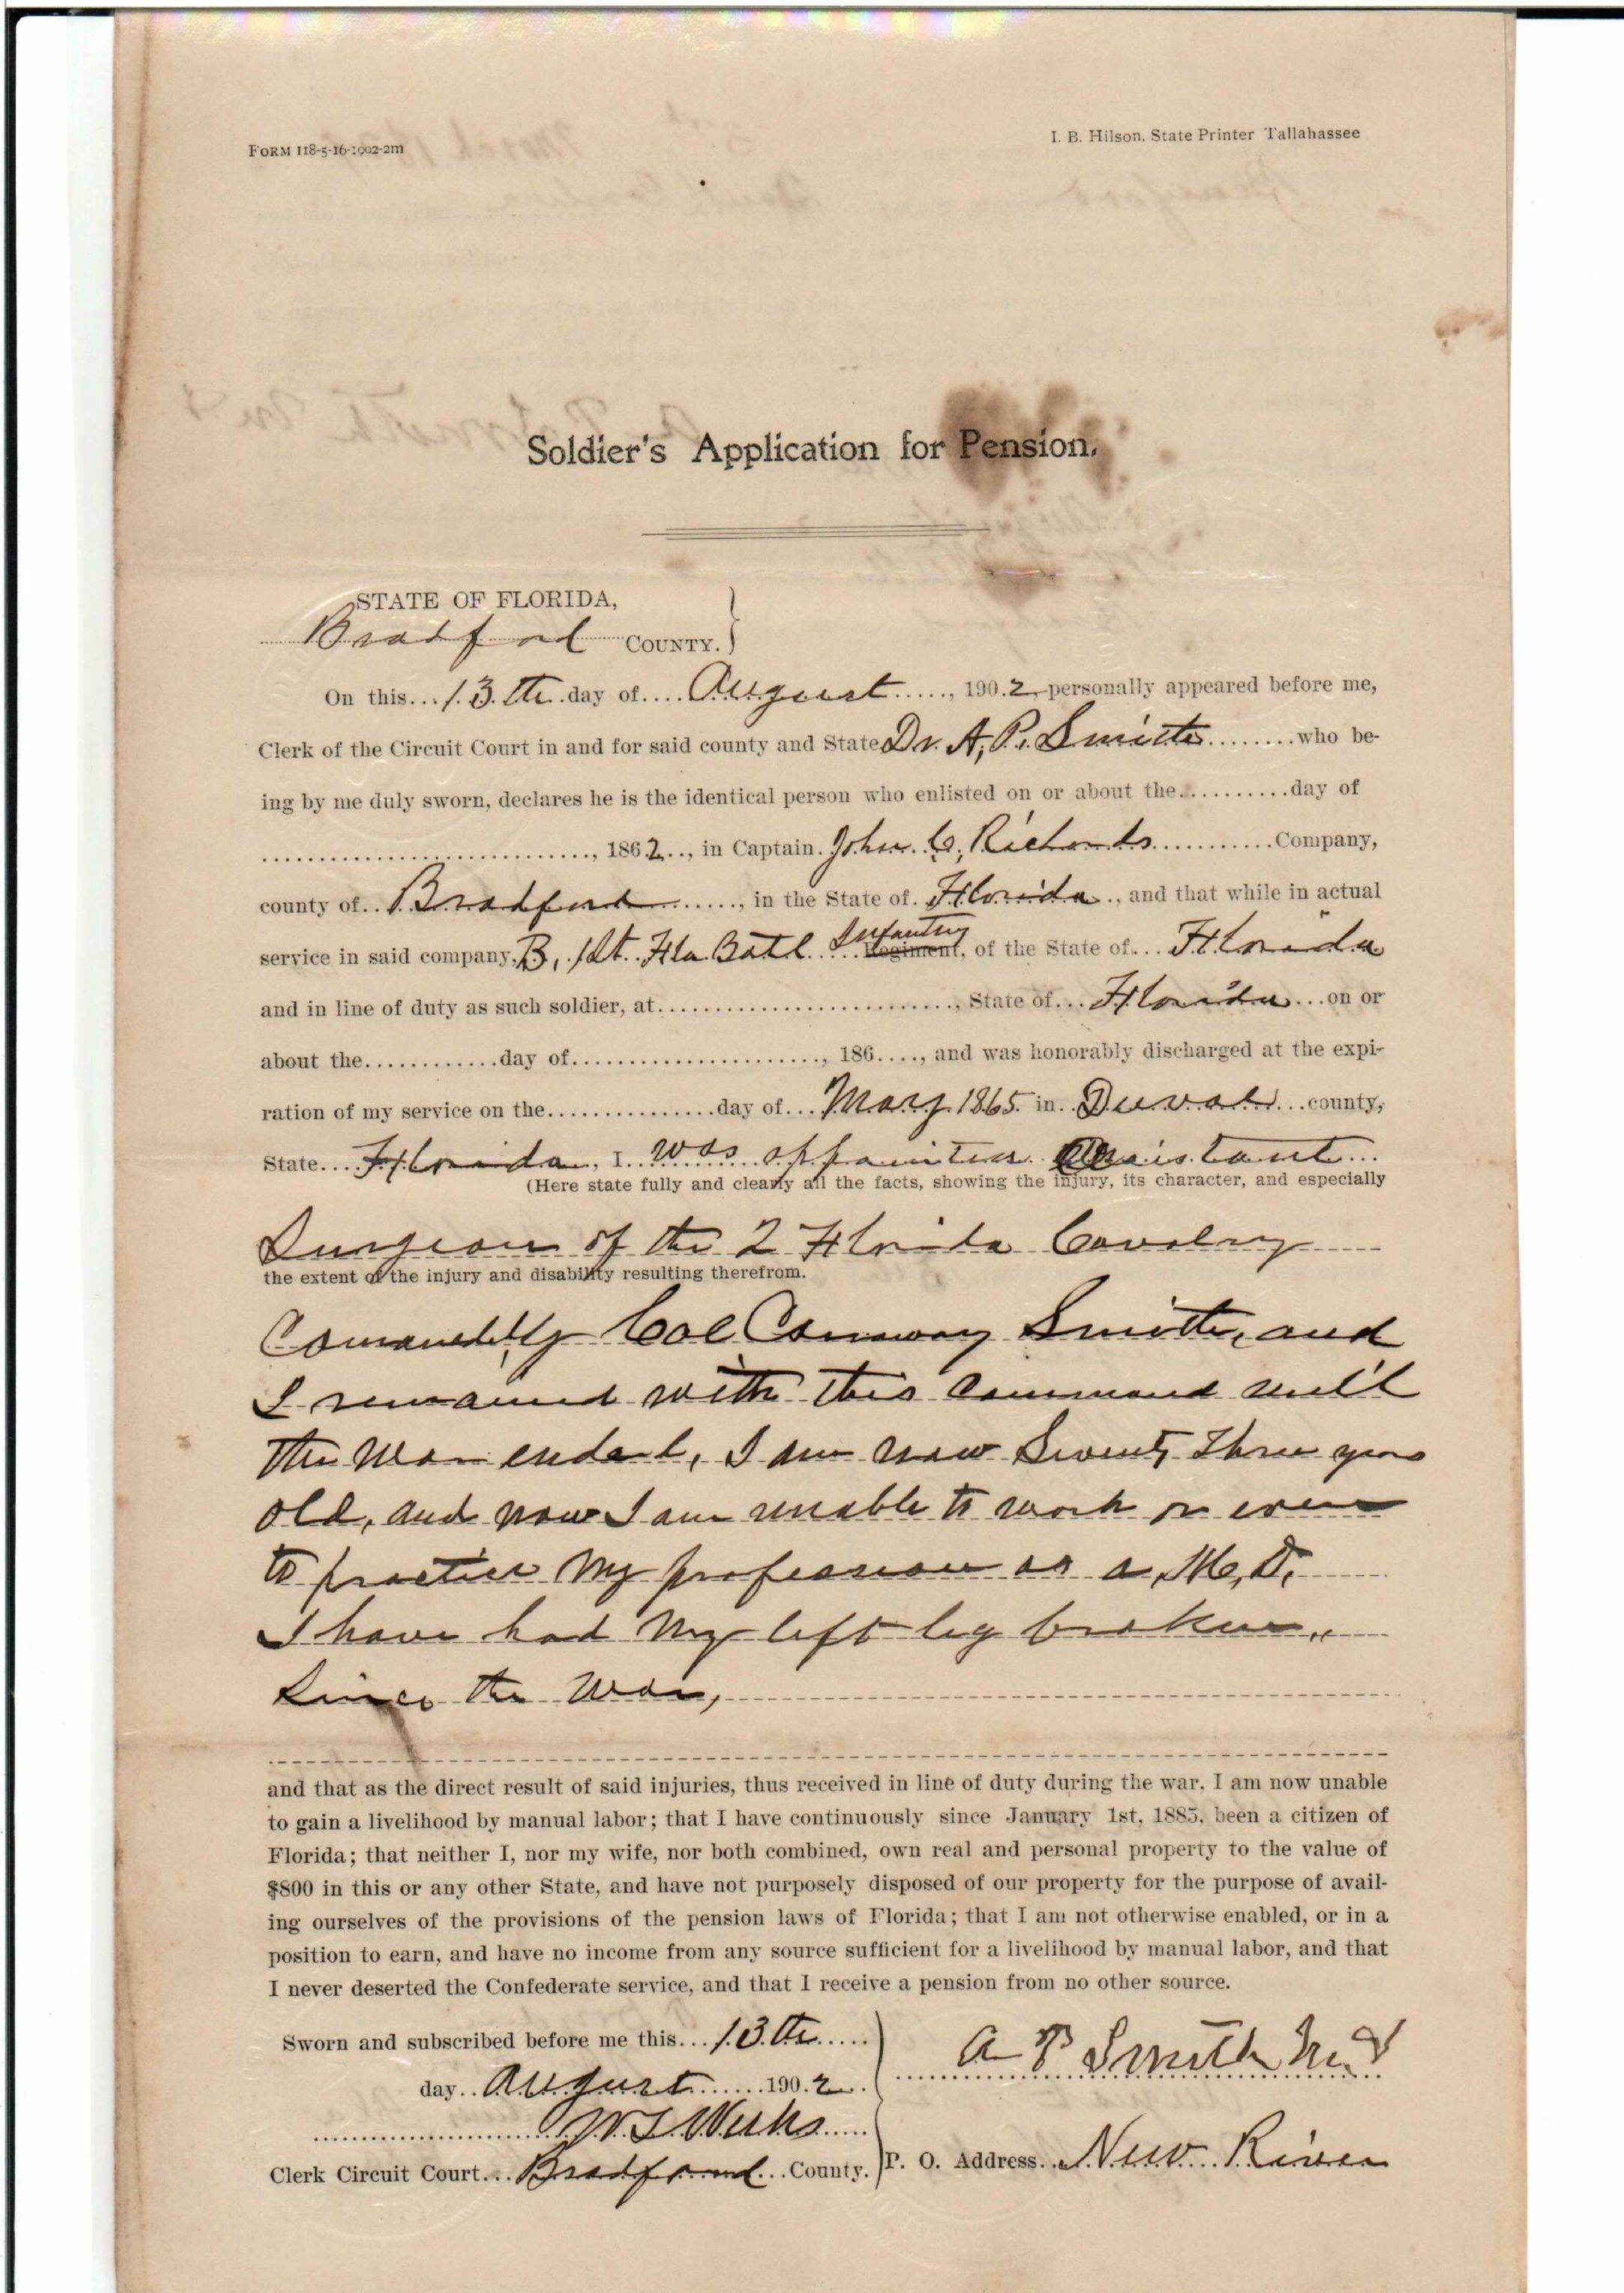 FORM 118-5-16-1902-2m
I. B. Hilson, State Printer Tallahassee
Soldier's Application for Pension.
STATE OF FLORIDA,
Bradford COUNTY.
On this...13th day of....August....., 1902 personally appeared before me,
Clerk of the Circuit Court in and for said county and State Dr. A, P. Smith........who be-
ing by me duly sworn, declares he is the identical person who enlisted on or about the..........day of
............................., 1862.., in Captain. John C, Richards............Company,
county of..Bradford......., in the State of. Florida.., and that while in actual
service in said company, B, 1st. Fla. Batl.... Infantry Regiment, of the State of... Florida
and in line of duty as such soldier, at.........................., State of... Florida...on or
about the............day of......................, 186...., and was honorably discharged at the expi-
ration of my service on the................day of...May 1865. in..Duval...county,
State....Florida., I..was appointed Assistant...
(Here state fully and clearly all the facts, showing the injury, its character, and especially
Surgeon of the 2 Florida Cavalry
the extent of the injury and disability resulting therefrom.
Col Smith, and
I remained with this Command until
the War ended, I am now Seventy three years
old, and now I am unable to work or even
to practice my profession as a, M, D.
I have had my left leg broken,,
Since the War,
and that as the direct result of said injuries, thus received in line of duty during the war, I am now unable
to gain a livelihood by manual labor; that I have continuously since January 1st, 1885, been a citizen of
Florida; that neither I, nor my wife, nor both combined, own real and personal property to the value of
$800 in this or any other State, and have not purposely disposed of our property for the purpose of avail-
ing ourselves of the provisions of the pension laws of Florida; that I am not otherwise enabled, or in a
position to earn, and have no income from any source sufficient for a livelihood by manual labor, and that
I never deserted the Confederate service, and that I receive a pension from no other source.
Sworn and subscribed before me this...13th.....
day..August.......1902..
A P Smith M.D
Clerk Circuit Court...Bradford...County.
P. O. Address...New River